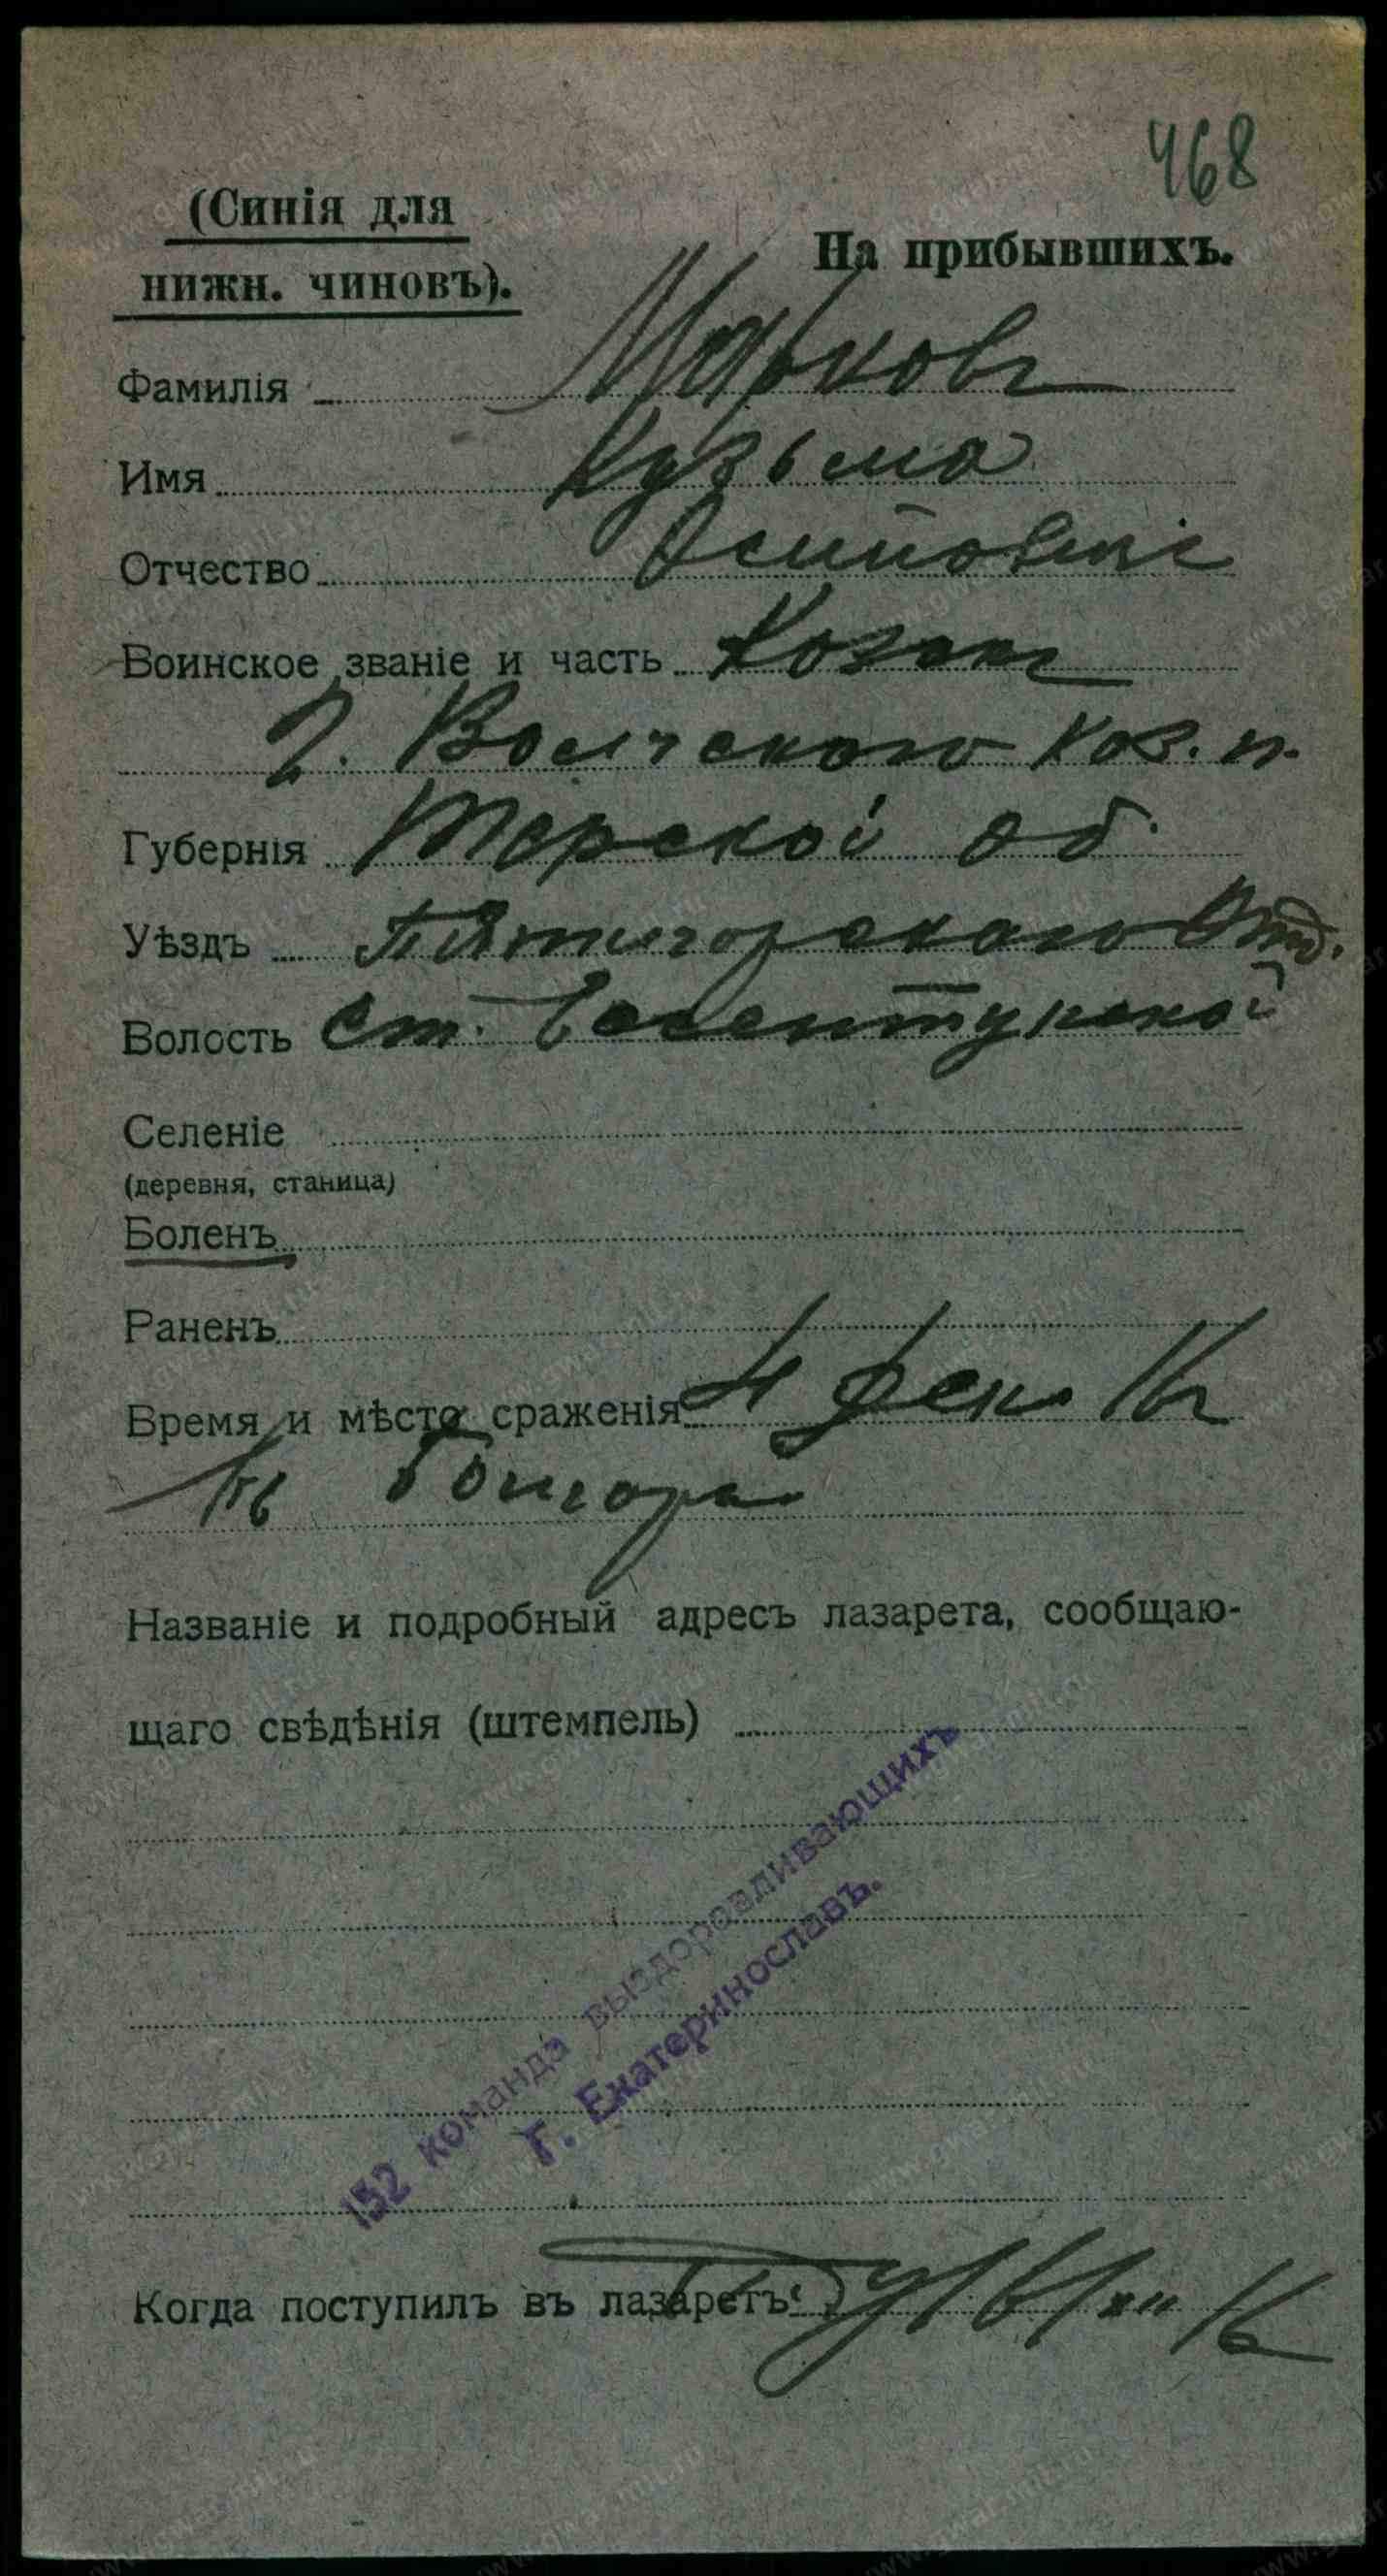 468
(Синія для
нижн. чиновъ).
На прибывшихъ.
Фамилія Марковъ
Имя Кузьма
Отчество Осиповичъ
Воинское званіе и часть Козакъ
2. Волгскаго Каз. п.
Губернія Терской об.
Уѣздъ Пятигорскаго Отд.
Волость ст. Ессентукской
Селеніе
(деревня, станица)
Боленъ
Раненъ
Время и мѣсто сраженія 4 дек. 16
Названіе и подробный адресъ лазарета, сообщаю-
щаго свѣдѣнія (штемпель)
152 команда выздоровливающихъ
Г. Екатеринославъ.
Когда поступилъ въ лазаретъ XII 16